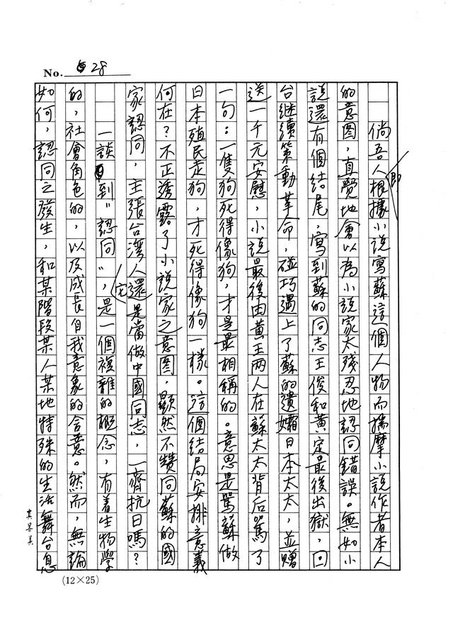 No. 28
倘吾人即根據小說寫蘇這個人物而揣摩小說作者本人
的意圖，直覺地會以為小說家太殘忍地認同錯誤。無如小
說還有個結尾，寫到蘇的同志王俊和黃定最後出獄，回
台繼續策動革命，碰巧遇上了蘇的遺孀日本太太，並贈
送一千元安慰，小說最後由黃王兩人在蘇太太背后罵了
一句：一隻狗死得像狗，才是最相稱的。意思是罵蘇做
日本殖民走狗，才死得像狗一樣。這個結局安排意義
何在？不正透露了小說家之意圖，顯然不贊同蘇的國
家認同，主張台灣人還是當做中國同志，一齊抗日嗎？
一談到"認同"，它是一個複雜的概念，有着生物學
的，社會角色的，以及成長自我意象的含意。然而，無論
如何，認同之發生，和某階段某人某地特殊的生活舞台息
(12×25)